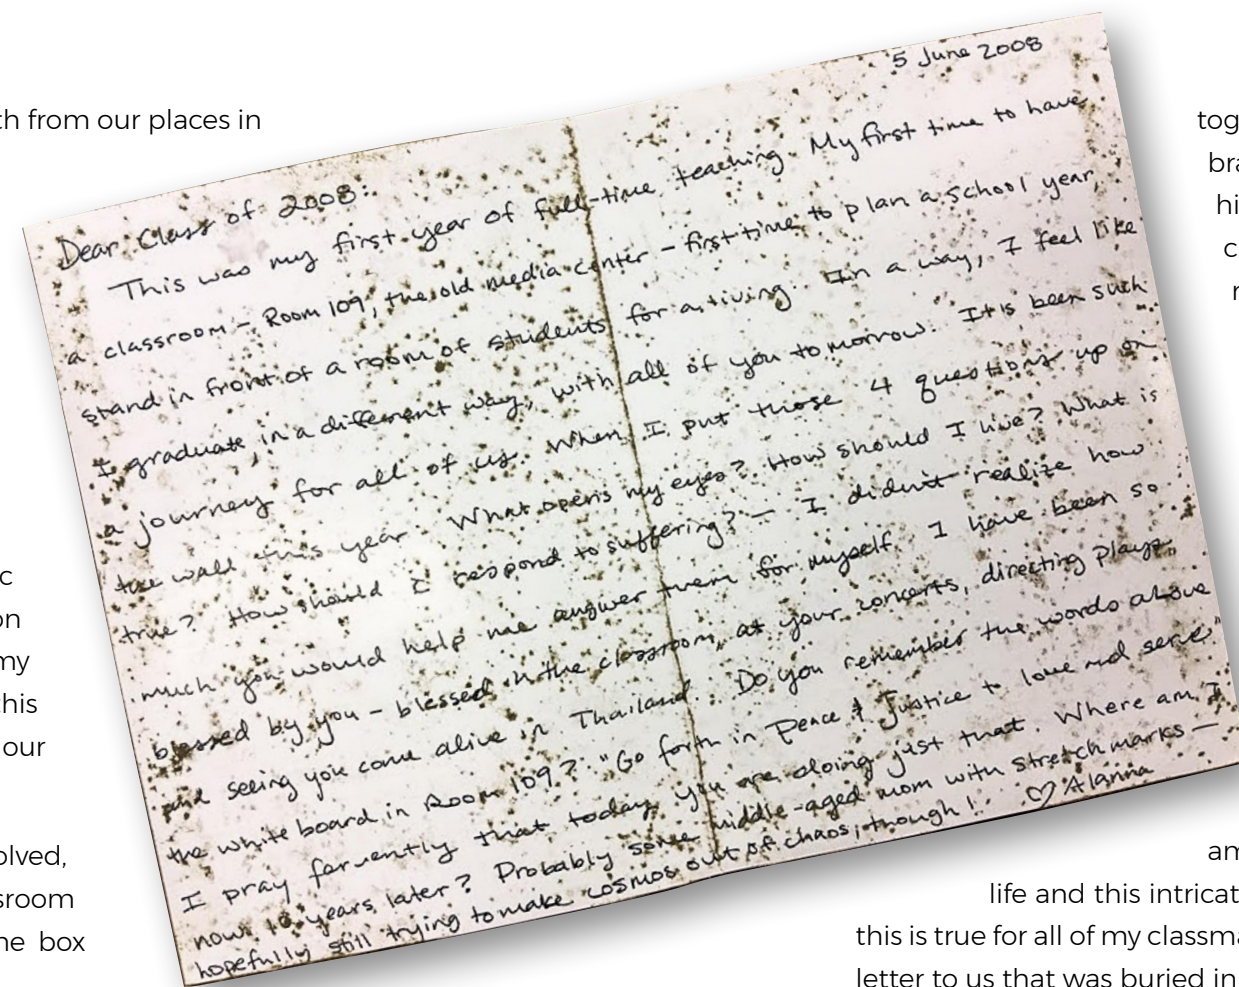 th from our places in
c
on
my
this
our
olved,
sroom
ne box
5 June 2008
Dear Class of 2008:
This was my first year of full-time teaching. My first time to have
a classroom – Room 109, the old media center – first time to plan a school year,
stand in front of a room of students for a living. In a way, I feel like
I graduate, in a different way, with all of you tomorrow. It is been such
a journey for all of us. When I put those 4 questions up on
the wall this year What opens my eyes? How should I live? What is
true? How should I respond to suffering? – I didn't realize how
much you would help me answer them for myself. I have been so
blessed by you – blessed in the classroom, at your concerts, directing plays,
and seeing you come alive in Thailand. Do you remember the words above
the white board in Room 109? "Go forth in Peace & Justice to love and serve"
I pray fervently that today you are doing just that. Where am I
now 10 years later? Probably some middle-aged mom with stretch marks –
hopefully still trying to make cosmos out of chaos, though! ♡ Alanna
tog
bra
hi
c
am
life and this intricat
this is true for all of my classma
letter to us that was buried in